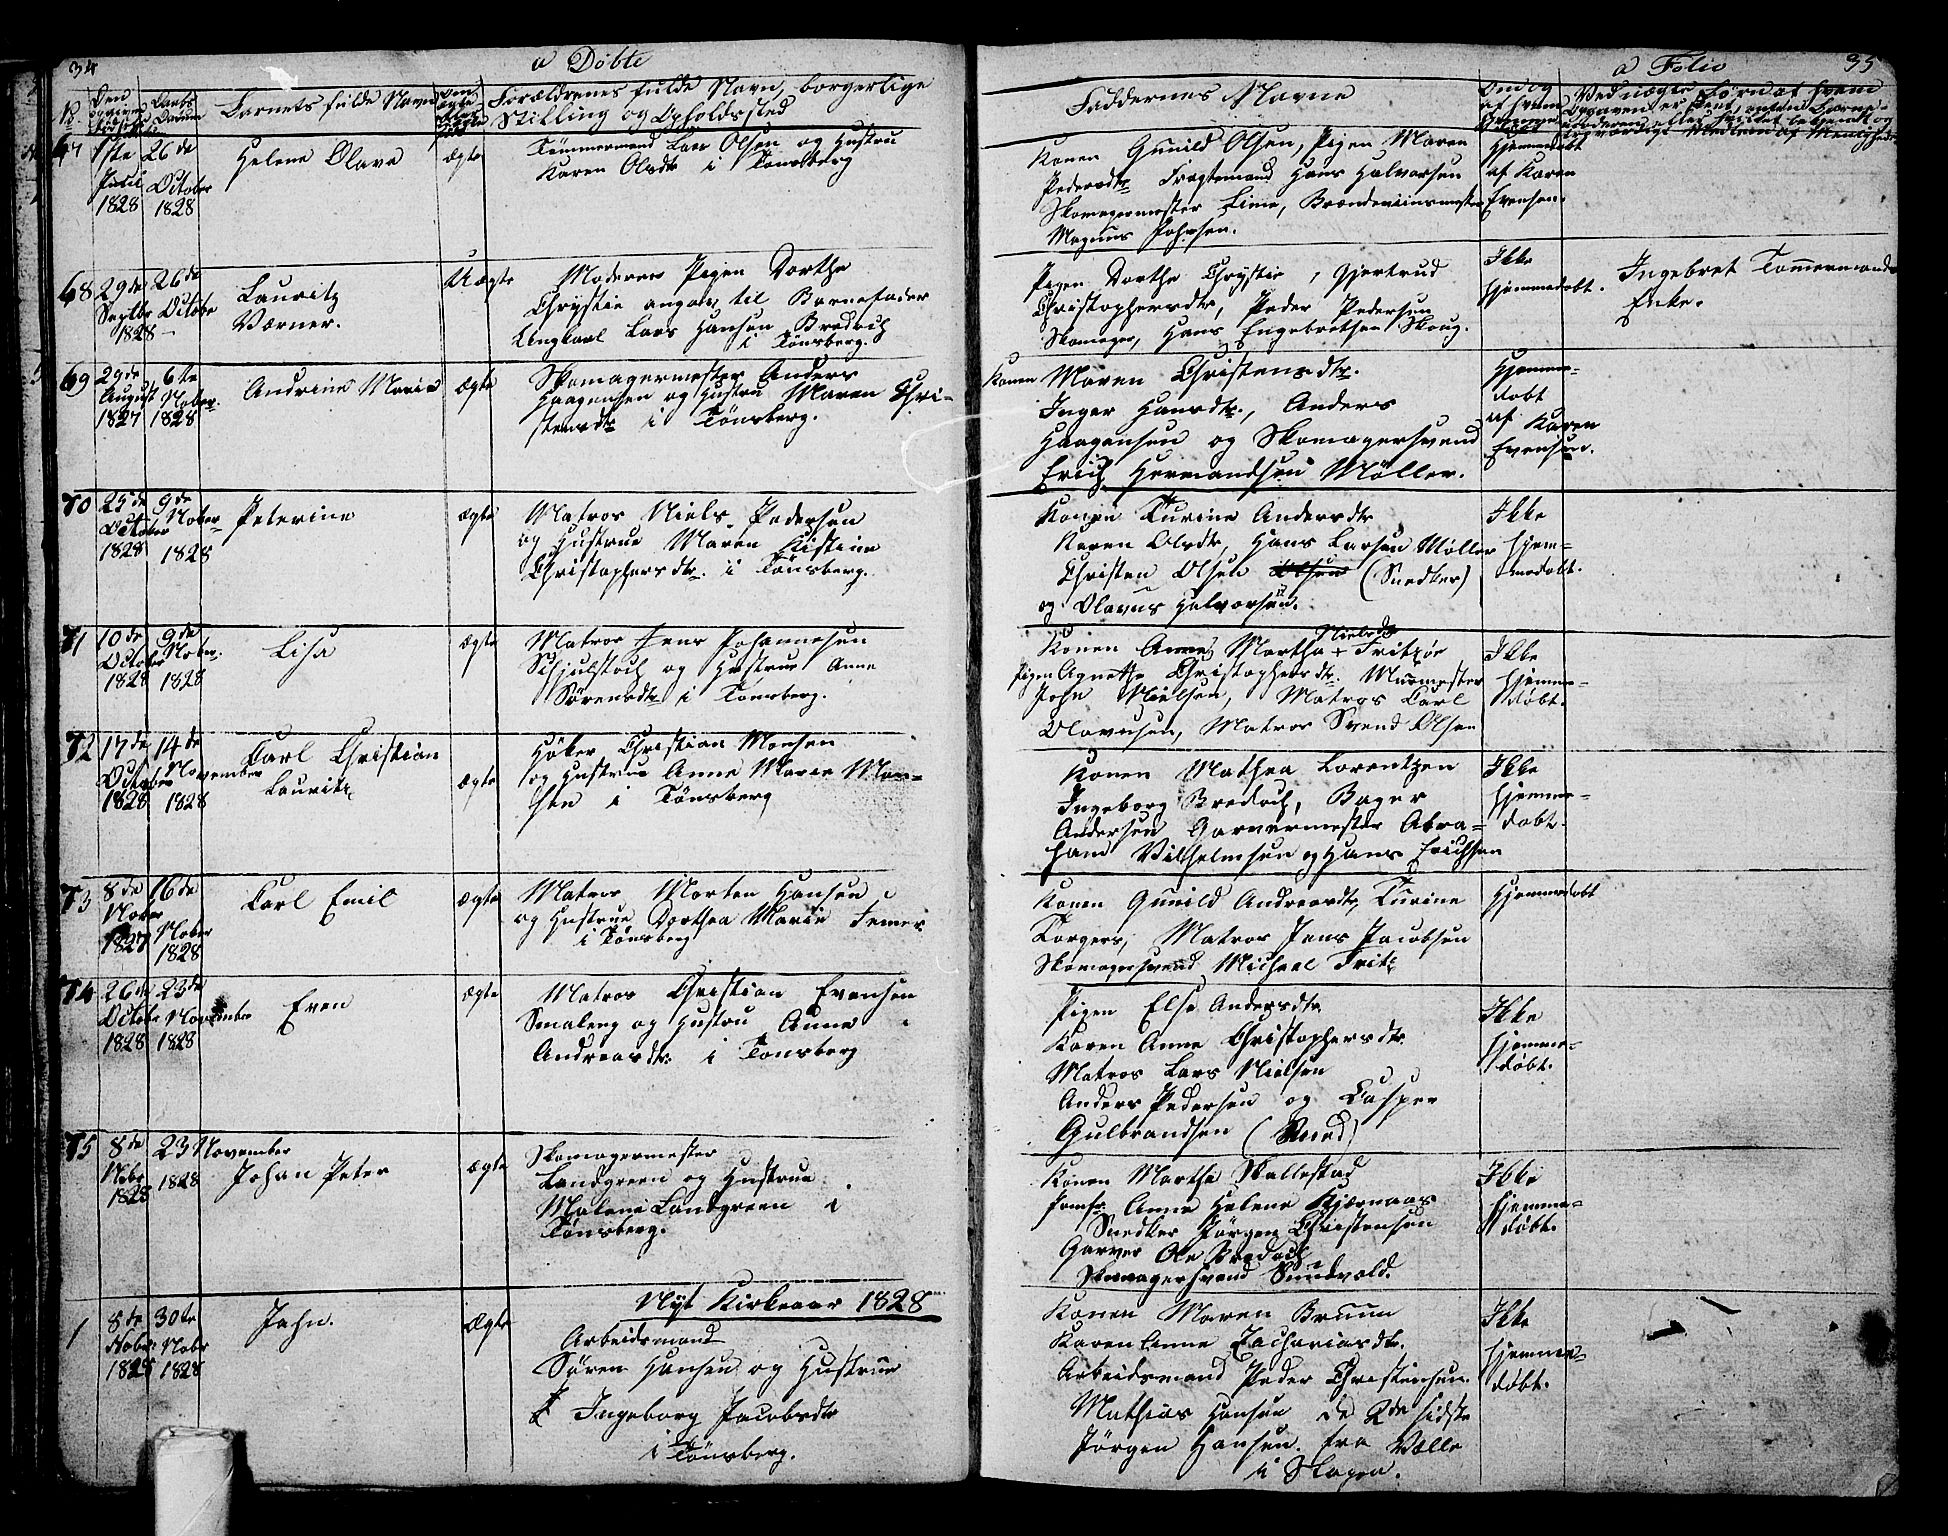 34
a Döbte
No
Barnets fulde Navn
Forældrenes fulde Navn, borgerlige
Stilling og Opholdssted
67
1ste
Julii
1828
26de
October
1828
Helene Olava
ægte
Tømmermand Lars Olsen og Hustru
Karen Olsdtr i Tonsberg
68
29de
Septbr
1828
26de
Octobr
Lauritz
Værner.
Uægte
Moderen Pigen Dorthe
Chrystie angav til Barnefader
Ungkarl Lars Hansen Bredoch
i Tønsberg.
69
29de
August
1827
6te
Nober
1828
Andrine Maria
ægte
Skomagermester Anders
Haagensen og Hustru Maren Chri-
stensdtr i Tönsberg.
70
25de
October
1828
9de
Nober
1828
Peterine
ægte
Matros Niels Pedersen
og Hustrue Maren Kistine
Christophersdtr. i Tønsberg.
71
10de
October
1828
9de
Nober.
1828
Lisa
ægte
Matros Jens Johannesen
Schjulstoch og Hustrue Anne
Sörensdtr i Tonsberg.
72
17de
October
1828
14de
November
1828
Carl Christian
Lauritz
ægte
Höker Christian Monsen
og Hustrue Anne Marie Mon-
sen i Tönsberg
73
8de
Nober
1827
16de
Nober
1828
Carl Emil
ægte
Matros Morten Hansen
og Hustrue Dorthea Marie Femer
i Tönsberg
74
26de
Octobr
1828
23de
November
1828
Even
ægte
Matros Christian Evensen
Smaleng og Hustru Anne
Andreasdtr. i Tonsberg
75
8de
Nobr
1828
23 November
1828
Johan Peter
ægte
Skomagermester
Landgreen og Hustrue
Malene Landgreen i
Tönsberg.
Nyt Kirkeaar 1828
1
8de
Nobr.
1828
30te
Nobr
1828
Jahn.
Ægte
Arbeidsmand
Sören Hansen og Hustrue
Ingeborg Jacobsdtr
i Tönsberg.
a Folio
35
Faddernes Navne
Konen Gunild Olsen, Pigen Maren
Pedersdtr Fragtemand Hans Halvorsen
Skomagermester Lime, Brændeviinsmester
Magnus Johnsen.
Hjemmedöbt
af Karen
Evensen.
Pigen Dorthe Chrystie, Gjertrud
Christophersdtr, Peder Pedersen
Skomager, Hans Engebretsen Skoug.
Ikke
hjemmedöbt.
Ingebret Tommermands
Enke.
Konen Maren Christensdtr.
Inger Hansdtr., Anders
Haagensen og Skomagersvend
Erich Hermandsen Møller.
Hjemme-
dobt
af Karen
Evensen.
Konen Turine Andersdtr
Karen Olsdtr, Hans Larsen Møller
Christen Olsen Olsen (Snedker)
og Olavus Halvorsen.
Ikke
hjem-
medobt.
Nielsdtr
Konen Anne Martha + Fritzöe
Pigen Agnethe Christophersdtr. Murmester
John Nielsen, Matros Carl
Olavusen, Matros Svend Olsen
Ikke
hjemme-
döbt.
Konen Mathea Lorentzen
Ingeborg Bredoch, Bager
Andersen Garvermester Abra-
ham Vilhelmsen og Hans Erichsen
Ikke
hjemme-
dobt.
Konen Gunild Andreasdtr, Turine
Torgers, Matros Jens Jacobsen
Skomagersvend Michael Fritz
Hjemmedobt
Pigen Else Andersdtr
Karen Anne Christophersdtr
Matros Lars Nielsen
Anders Pedersen og Casper
Gulbrandsen
Ikke
hjemme-
döbt.
Konen Marthe Skallestad
Jomfr. Anne Helene Kjærnaas
Snedker Jørgen Christensen
Garver Ole Bredoch
Skomagersvend Sundvold.
Ikke
hjemme-
döbt.
Konen Maren Bruun
Karen Anne Zachariasdtr.
Arbeidsmand Peder Christensen.
Mathias Hansen de 2de sidste
Jörgen Hansen. fra Valle
i Slagen.
Ikke
hjemme-
döbt.